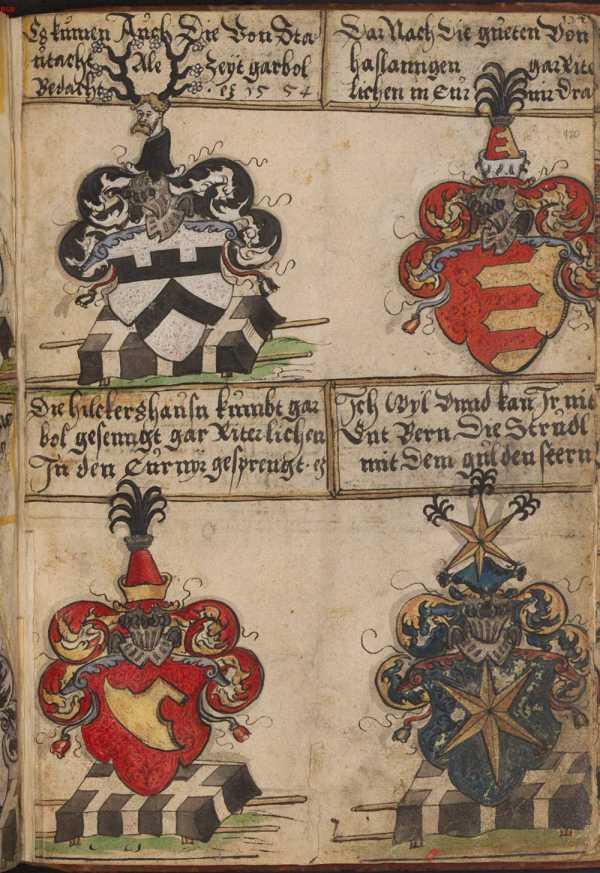 Es kumen Auch Die Von Sta
utacht Ale Zeÿt gar bol
Bedacht · es 1554 ·
Dar Nach Die gueten Von
haslanngen gar Rite
lichen in Tur nir Dra
120
Die hilckershausn kumbt gar
bol gesenngt gar Riterlichen
In den Turnÿr gesprengt · es
Ich Wÿl Vnnd kan Ir nit
Ent Bern Die Strudl
mit Dem gulden stern